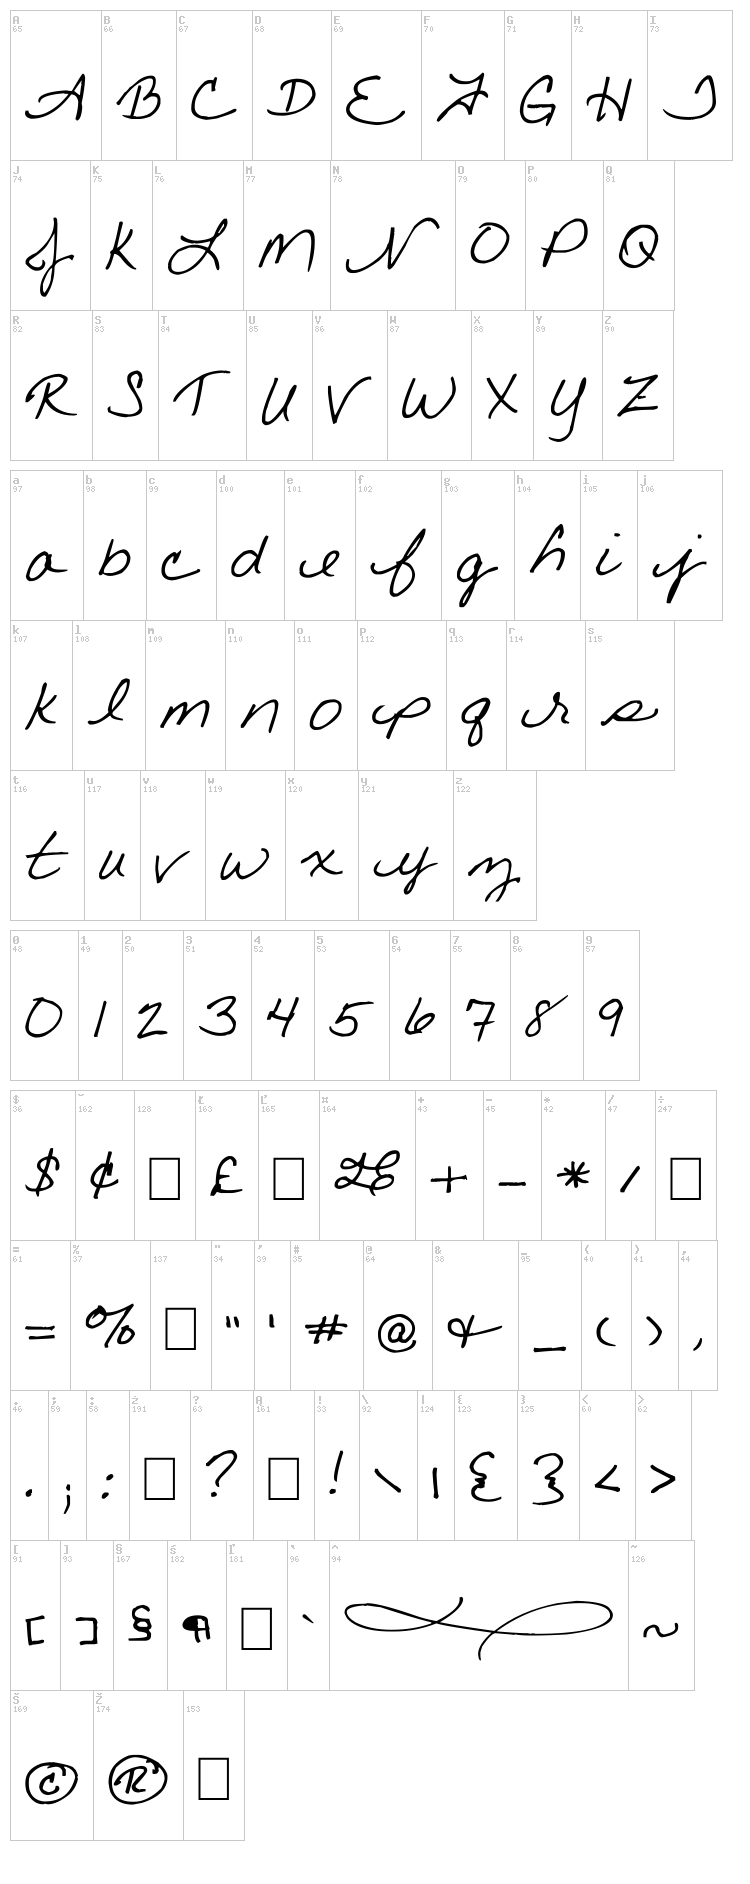 A B C D E F G H I
65 66 67 68 69 70 71 72 73
A B C D E F G H I
J K L M N O P Q
74 75 76 77 78 79 80 81
J K L M N O P Q
R S T U V W X Y Z
82 83 84 85 86 87 88 89 90
R S T U V W X Y Z
a b c d e f g h i j
97 98 99 100 101 102 103 104 105 106
a b c d e f g h i j
k l m n o p q r s
107 108 109 110 111 112 113 114 115
k l m n o p q r s
t u v w x y z
116 117 118 119 120 121 122
t u v w x y z
0 1 2 3 4 5 6 7 8 9
48 49 50 51 52 53 54 55 56 57
0 1 2 3 4 5 6 7 8 9
$ ˘ Ł Ľ ¤ + - * / ÷
36 162 128 163 165 164 43 45 42 47 247
$ ¢ £ + - * /
= % " ' # @ & _ ( ) ,
61 37 137 34 39 35 64 38 95 40 41 44
= % " ' # @ & _ ( ) ,
. ; : ż ? Ą ! \ | { } < >
46 59 58 191 63 161 33 92 124 123 125 60 62
. ; : ? ! \ | { } < >
[ ] § ś ľ ` ^ ~
91 93 167 182 181 96 94 126
[ ] § ¶ ` ~
Š Ž
169 174 153
© ®